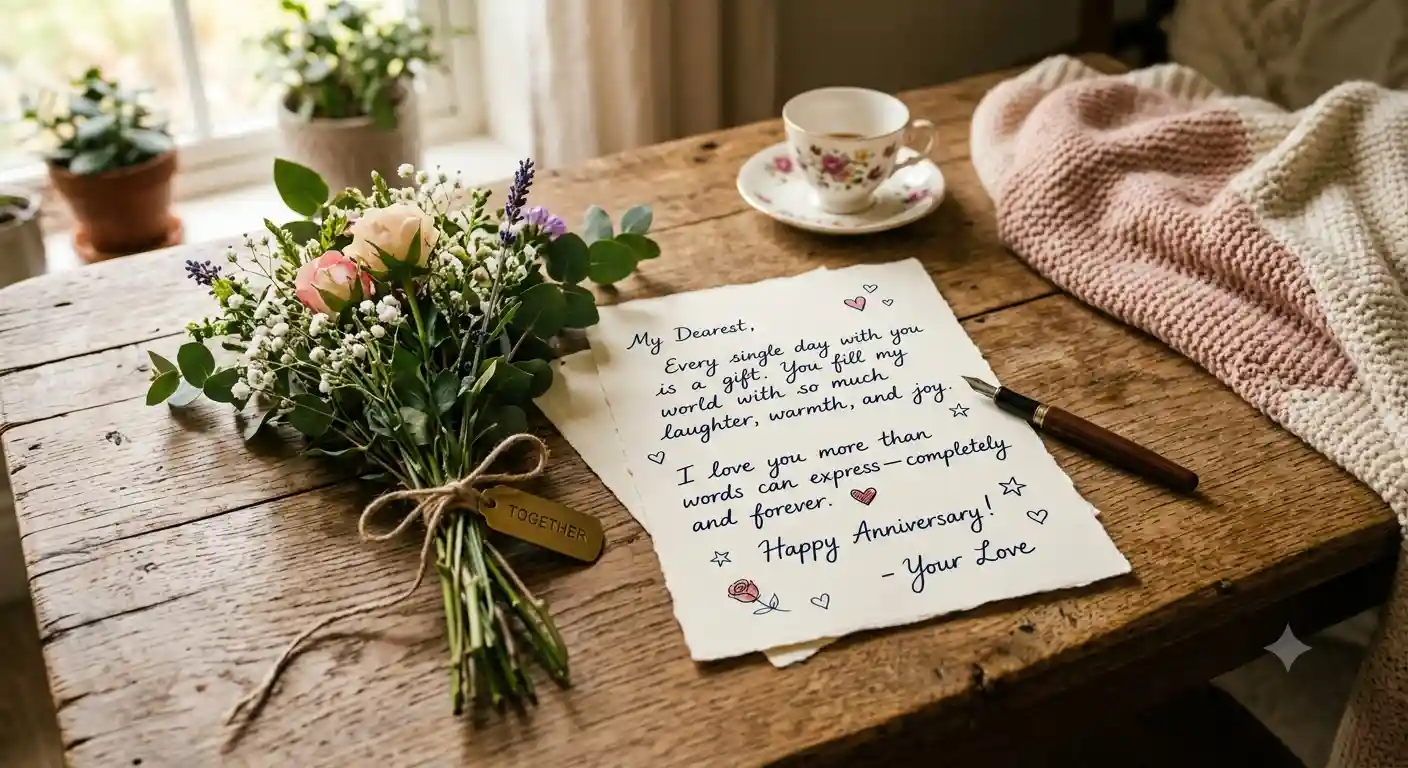 My Dearest,
Every single day with you
is a gift. You fill my
world with so much
laughter, warmth, and joy.
I love you more than
words can express—completely
and forever.
Happy Anniversary!
- Your Love
TOGETHER